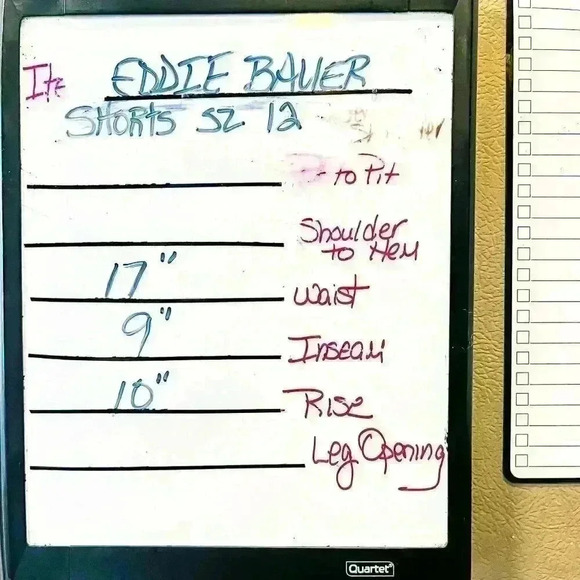 Ite EDDIE BAUER
SHORTS SZ 12
- to Pit
Shoulder
to Hem
17" Waist
9" Inseam
10" Rise
Leg Opening
Quartet®